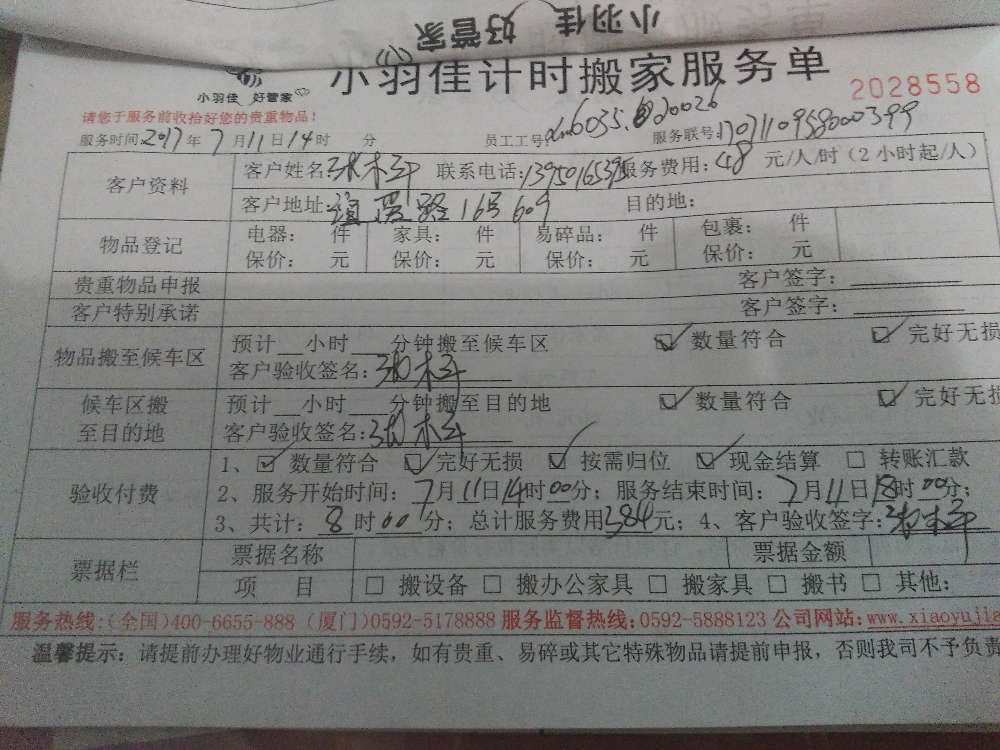 小羽佳 好管家
小羽佳 好管家
小羽佳计时搬家服务单
2028558
请您于服务前收拾好您的贵重物品!
服务时间:2017年7月11日14时 分 员工工号: 服务联号:
客户资料
客户姓名: 联系电话: 服务费用:48元/人/时(2小时起/人)
客户地址: 路16号609 目的地:
物品登记
电器: 件 家具: 件 易碎品: 件 包裹: 件
保价: 元 保价: 元 保价: 元 保价: 元
贵重物品申报 客户签字:
客户特别承诺 客户签字:
物品搬至候车区
预计__小时___分钟搬至候车区 ☑数量符合 ☑完好无损
客户验收签名:
候车区搬至目的地
预计__小时___分钟搬至目的地 ☑数量符合 ☑完好无损
客户验收签名:
验收付费
1、☑数量符合 ☑完好无损 ☑按需归位 ☑现金结算 □转账汇款
2、服务开始时间:7月11日14时00分;服务结束时间:7月11日18时00分;
3、共计:8时00分;总计服务费用384元;4、客户验收签字:
票据栏
票据名称 票据金额
项 目 □搬设备 □搬办公家具 □搬家具 □搬书 □其他:
服务热线:(全国)400-6655-888 (厦门)0592-5178888 服务监督热线:0592-5888123 公司网站:www.xiaoyujia
温馨提示:请提前办理好物业通行手续,如有贵重、易碎或其它特殊物品请提前申报,否则我司不予负责